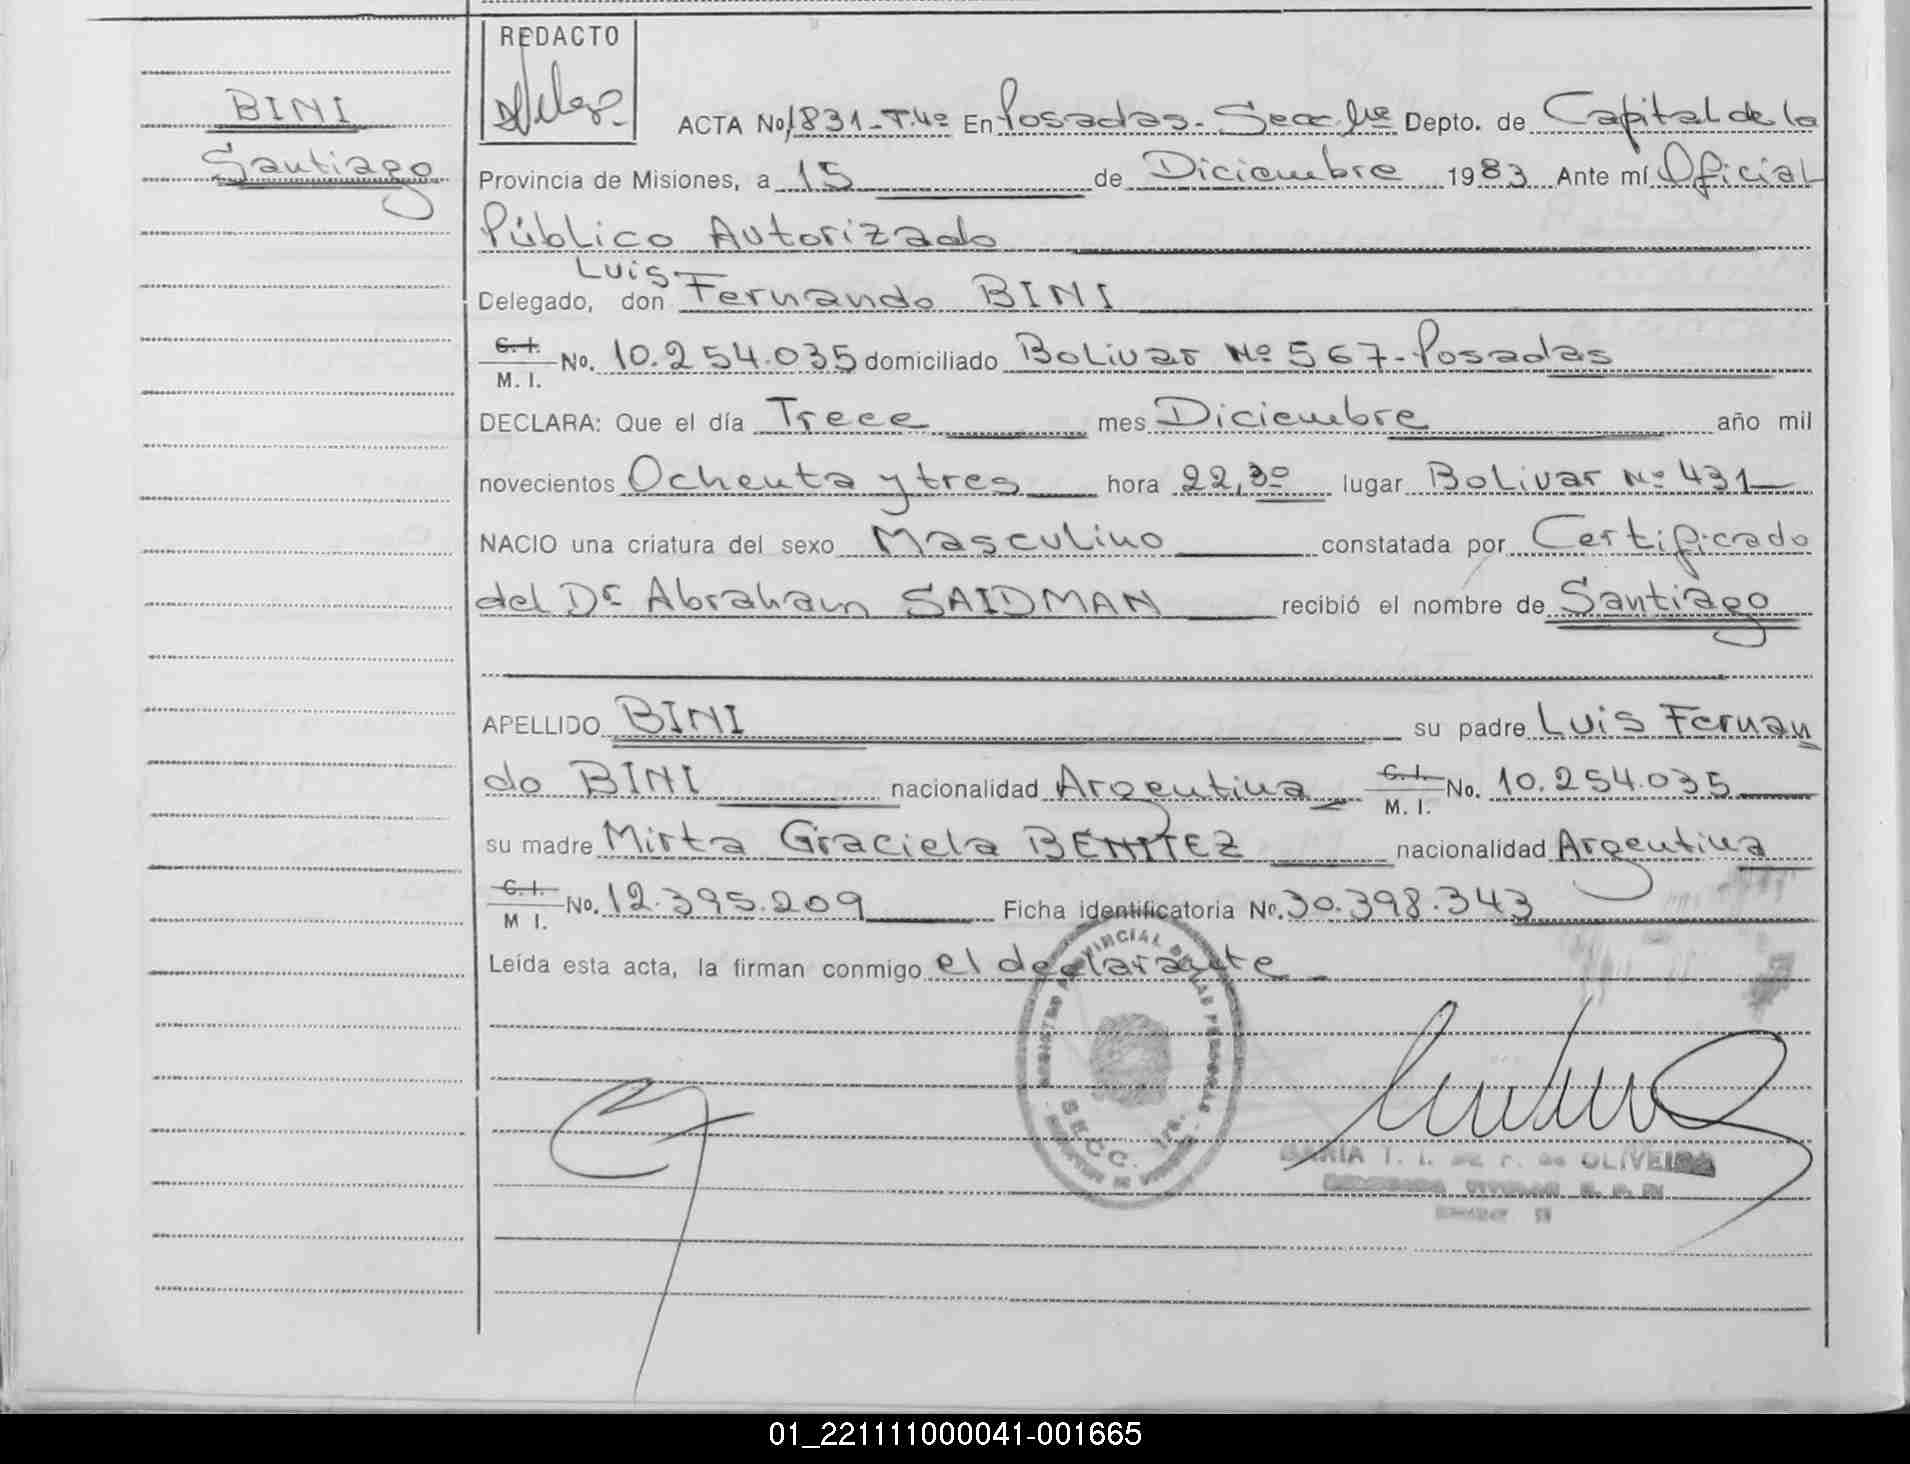 REDACTO
BINI
Santiago
ACTA No. 1831-T.4º En Posadas-Secc 1ra Depto. de Capital de la
Provincia de Misiones, a 15 de Diciembre 1983 Ante mí Oficial
Público Autorizado
Luis
Delegado, don Fernando BINI
C. I.
M. I. No. 10.254.035 domiciliado Bolivar Nº 567-Posadas
DECLARA: Que el día Trece mes Diciembre año mil
novecientos Ochenta y tres hora 22,30 lugar Bolivar Nº 431
NACIO una criatura del sexo Masculino constatada por Certificado
del Dr Abraham SAIDMAN recibió el nombre de Santiago
APELLIDO BINI su padre Luis Fernan
do BINI nacionalidad Argentina C. I.
M. I. No. 10.254.035
su madre Mirta Graciela BENITEZ nacionalidad Argentina
C. I.
M I. No. 12.395.209 Ficha identificatoria No. 30.398.343
Leída esta acta, la firman conmigo el declarante
REGISTRO PROVINCIAL DE LAS PERSONAS
SECC. 1ra.
OLIVEIRA
01_221111000041-001665